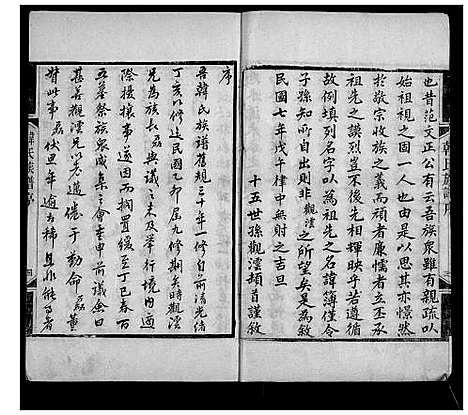 也昔范文正公有云吾族衆雖有親疏以
始祖視之固一人也由是以思其亦憬然
於敬宗收族之義而頑者廉懦者立機
祖先之謨烈豈不後先相輝映乎若遵循
故例填列名字以為祖先之名諱簿僅令
子孫知所自出則非觀澐之所望矣是為序
民國七年戊午律中無射之吉旦
十五世孫觀澐頓首謹敘
韓氏族譜序
序
吾韓氏族譜舊規三十年一修自前清光緒
丁亥以修迄民國乙卯届九修期矣時觀澐
兄為族長與議之未及舉行境內適
際擾攘事遂因而擱置緩至丁巳春百
五墓祭族衆咸集會末申前議
甚善觀澐兄以老遺倦于動命磊董
督此事磊伏思年逾古稀且非能事者
韓氏族譜序
四